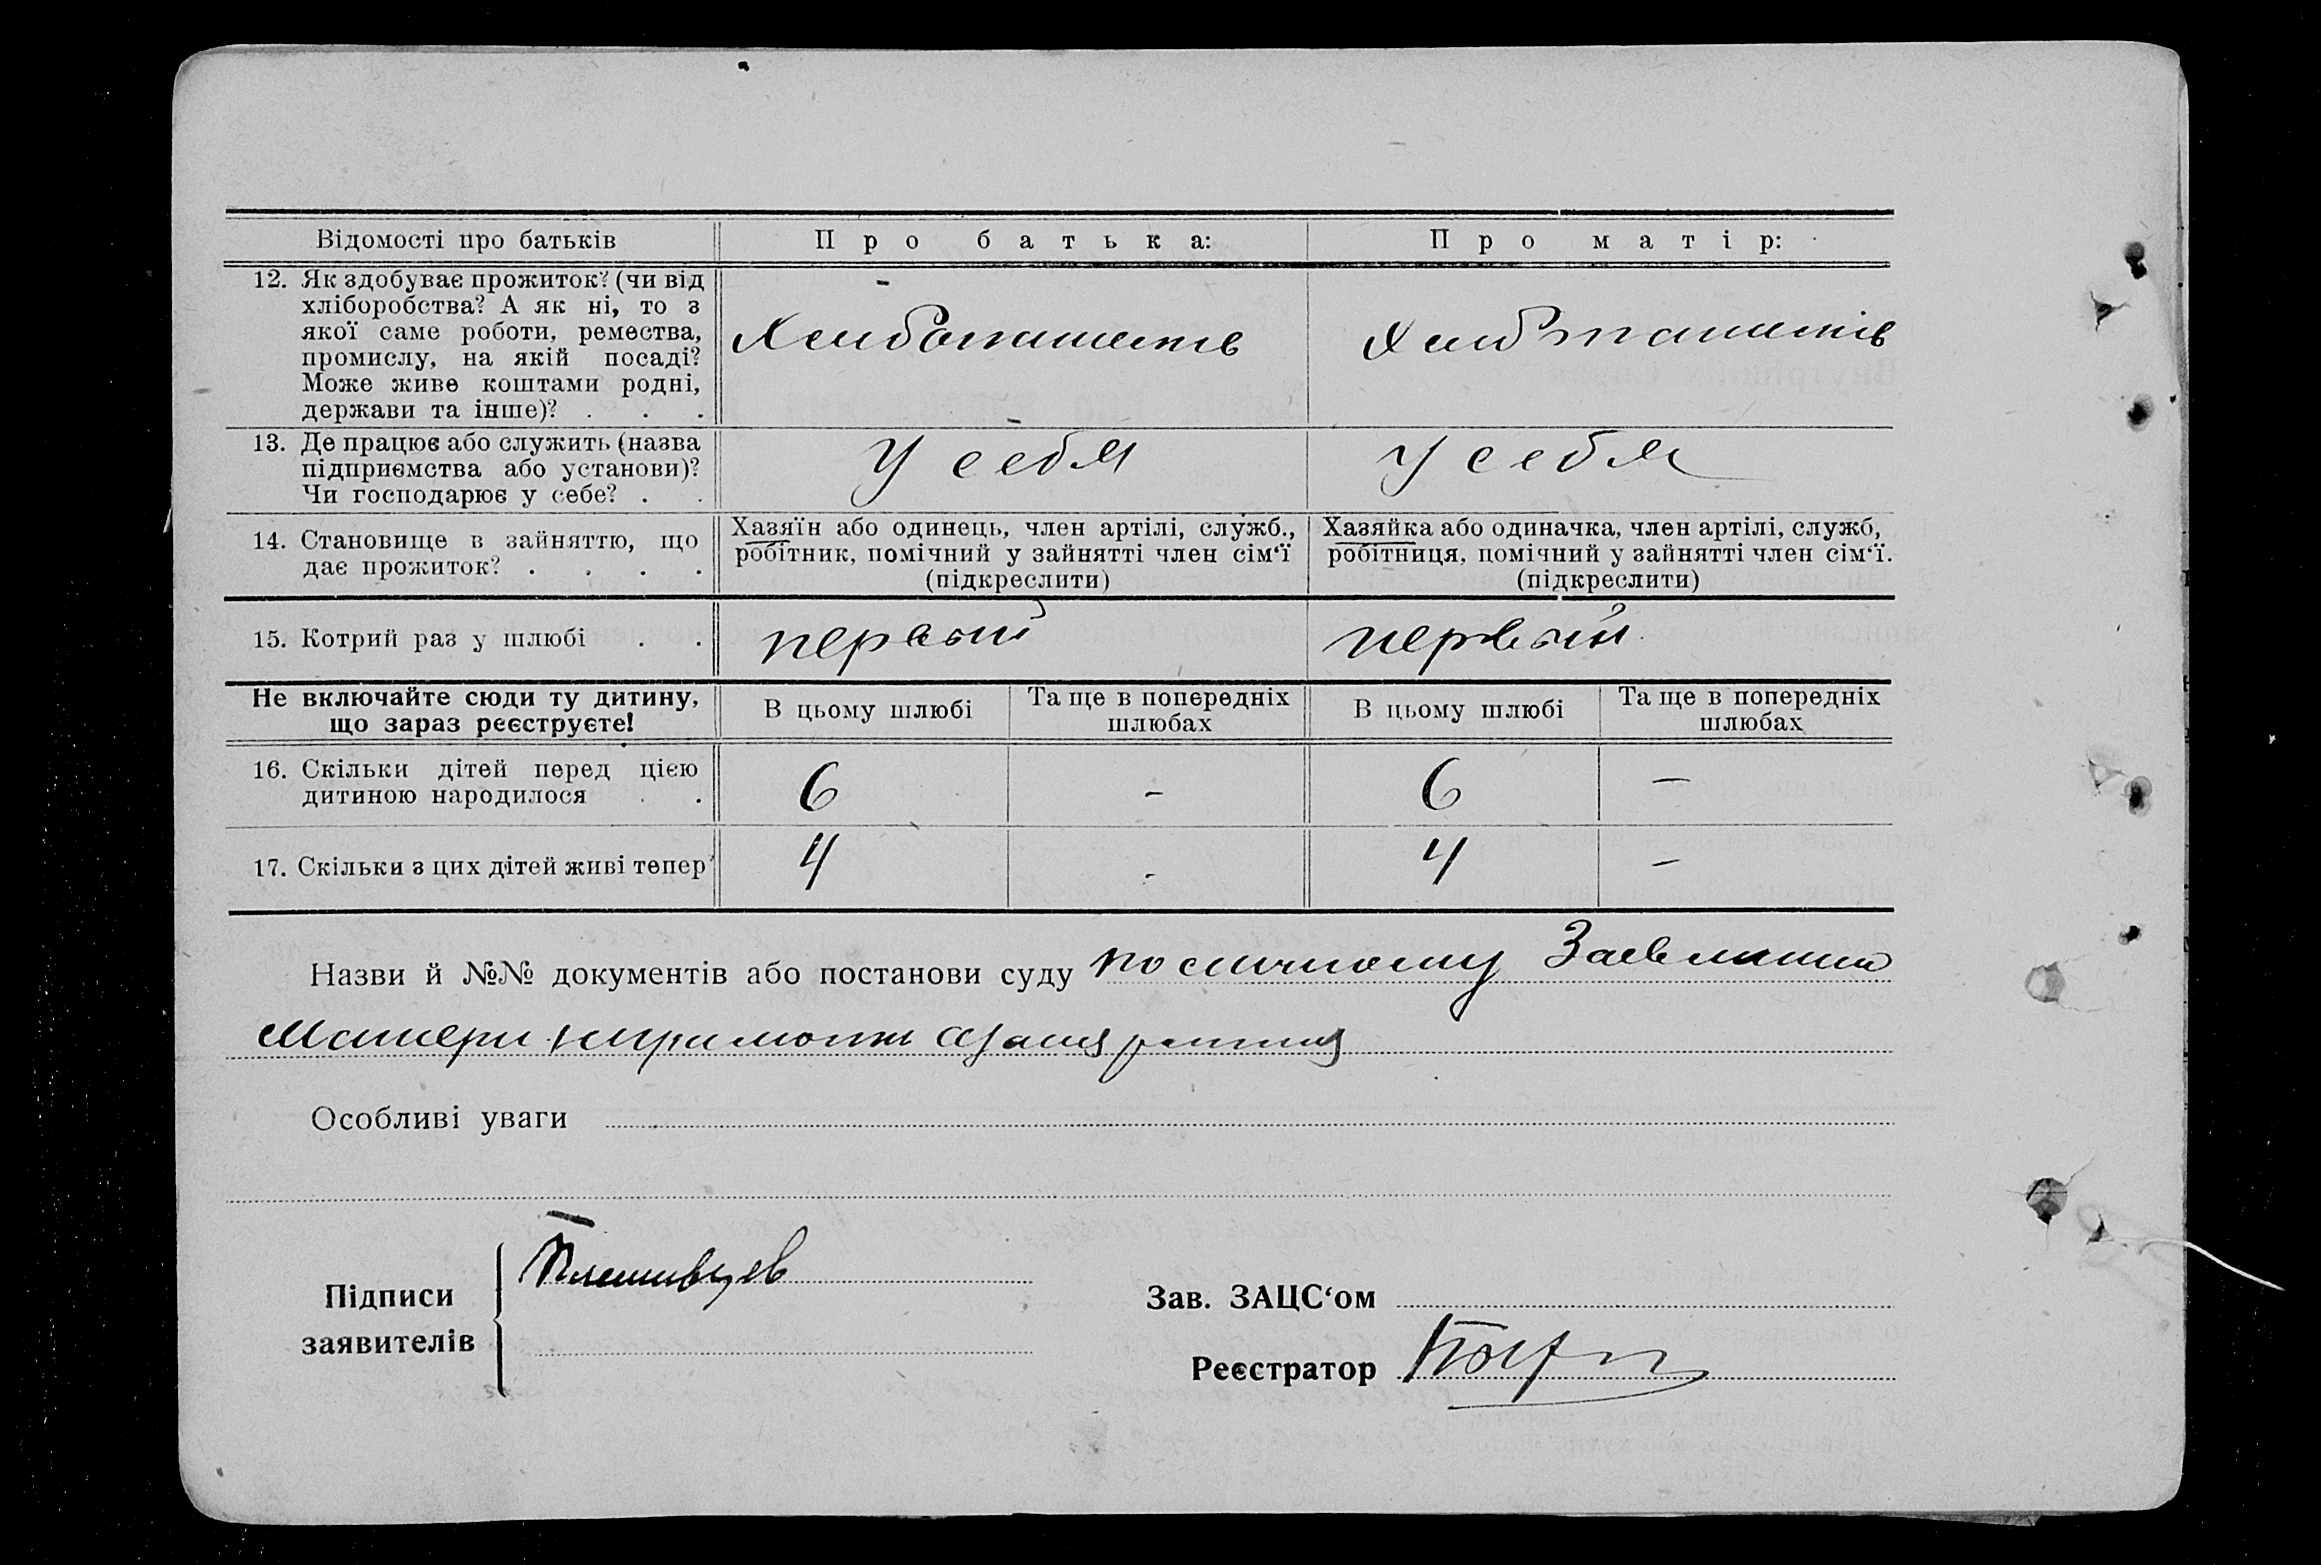 Відомості про батьків Про батька: Про матір:
12. Як здобуває прожиток? (чи від
хліборобства? А як ні, то з
якої саме роботи, ремества,
промислу, на якій посаді?
Може живе коштами родні,
держави та інше)? . . .
Хлибопашеств Хлибопашеств
13. Де працює або служить (назва
підприємства або установи)?
Чи господарює у себе? . .
У себя У себя
14. Становище в зайняттю, що
дає прожиток? . . . .
Хазяїн або одинець, член артілі, служб.,
робітник, помічний у зайнятті член сім‘ї
(підкреслити)
Хазяйка або одиначка, член артілі, служб,
робітниця, помічний у зайнятті член сім‘ї.
(підкреслити)
15. Котрий раз у шлюбі . . первый первый
Не включайте сюди ту дитину,
що зараз реєструєте!
В цьому шлюбі Та ще в попередніх
шлюбах
В цьому шлюбі Та ще в попередніх
шлюбах
16. Скільки дітей перед цією
дитиною народилося . .
6 - 6 -
17. Скільки з цих дітей живі тепер? 4 - 4 -
Назви й №№ документів або постанови суду по личному Заевлению
Матери
Особливі уваги
Підписи
заявителів
Плешивцев
Зав. ЗАЦС‘ом
Реєстратор